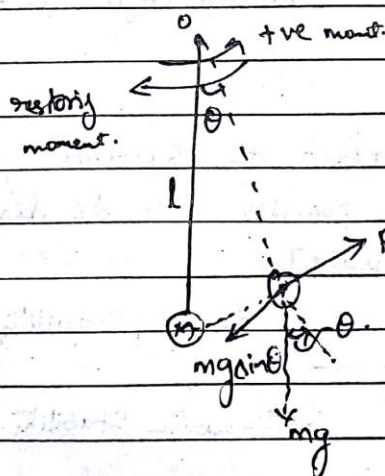 O
+ve momt.
restoring
moment.
θ
l
F
m
θ.
mg sinθ
mg